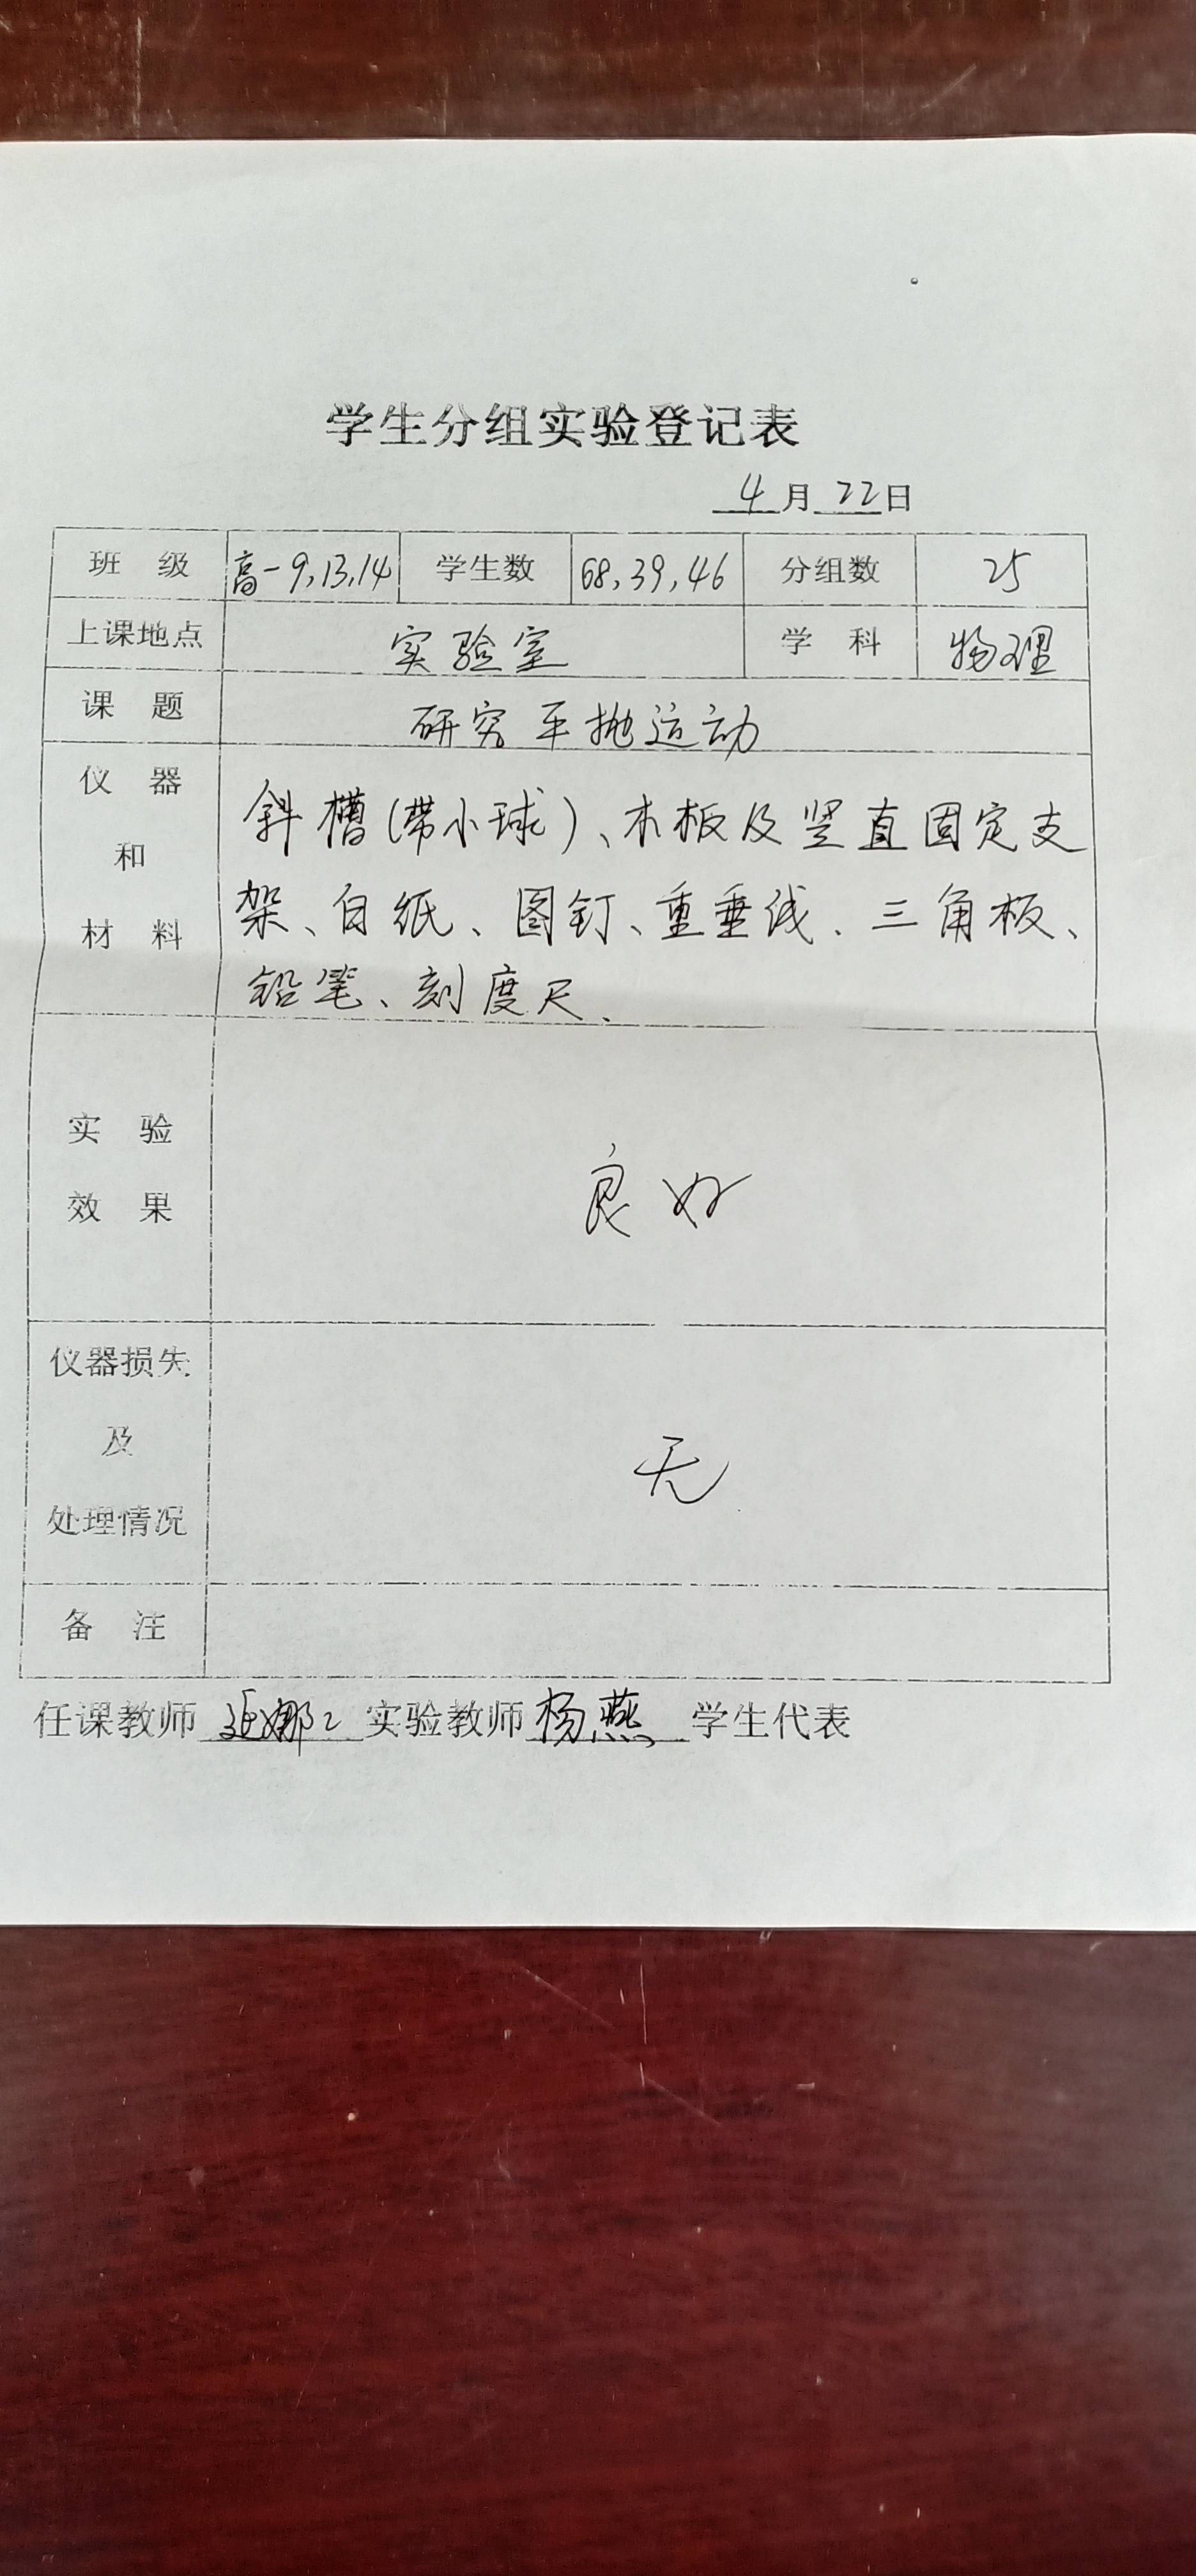 学生分组实验登记表
4月22日
班 级 高一9,13,14 学生数 68,39,46 分组数 25
上课地点 实验室 学 科 物理
课 题 研究平抛运动
仪 器
和
材 料
斜槽(带小球)、木板及竖直固定支
架、白纸、图钉、重垂线、三角板、
铅笔、刻度尺、
实 验
效 果
良好
仪器损失
及
处理情况
无
备 注
任课教师 延娜 实验教师 杨燕 学生代表